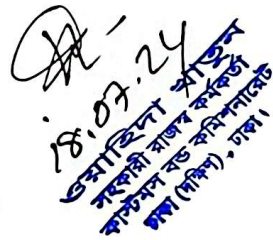 18.07.24
ওয়াহিদা খাতুন
সহকারী রাজস্ব কর্মকর্তা
কাস্টমস বন্ড কমিশনারেট
ঢাকা (দক্ষিণ), ঢাকা।